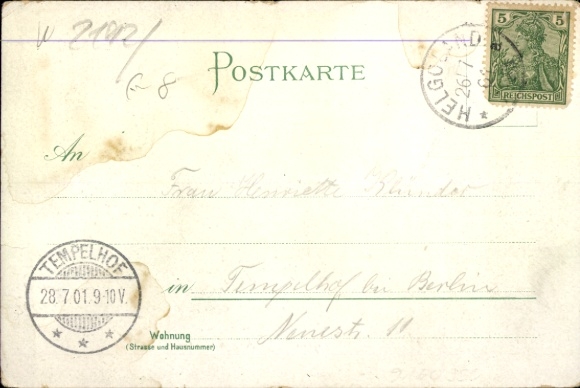 W 2192/
G 8
POSTKARTE
5 5
REICHSPOST
HELGOLAND
26.7.
An
Frau Henriette Klünder
TEMPELHOF
28.7.01.9-10V.
in Tempelhof bei Berlin
Wohnung
(Strasse und Hausnummer)
Neuestr. 11